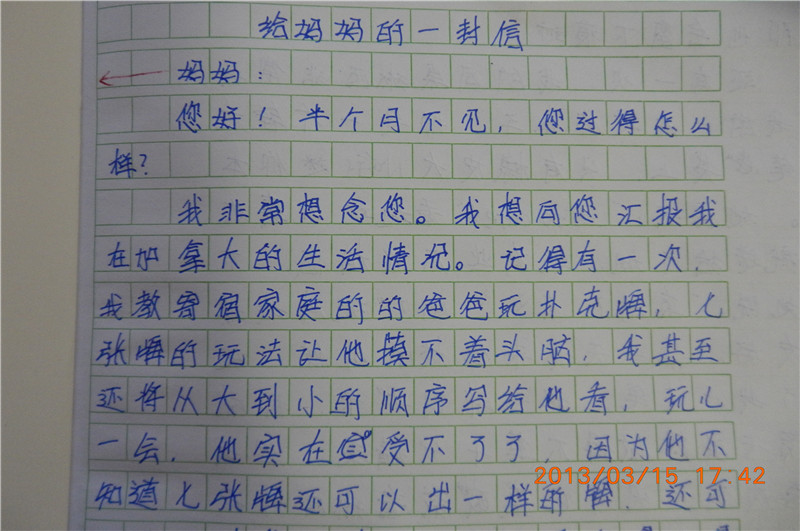 给妈妈的一封信
妈妈：
您好！半个月不见，您过得怎么
样？
我非常想念您。我想向您汇报我
在加拿大的生活情况。记得有一次，
我教寄宿家庭的的爸爸玩扑克牌，七
张牌的玩法让他摸不着头脑，我甚至
还将从大到小的顺序写给他看，玩儿
一会，他实在受不了了，因为他不
知道七张牌还可以出一样所牌，还可
2013/03/15 17:42